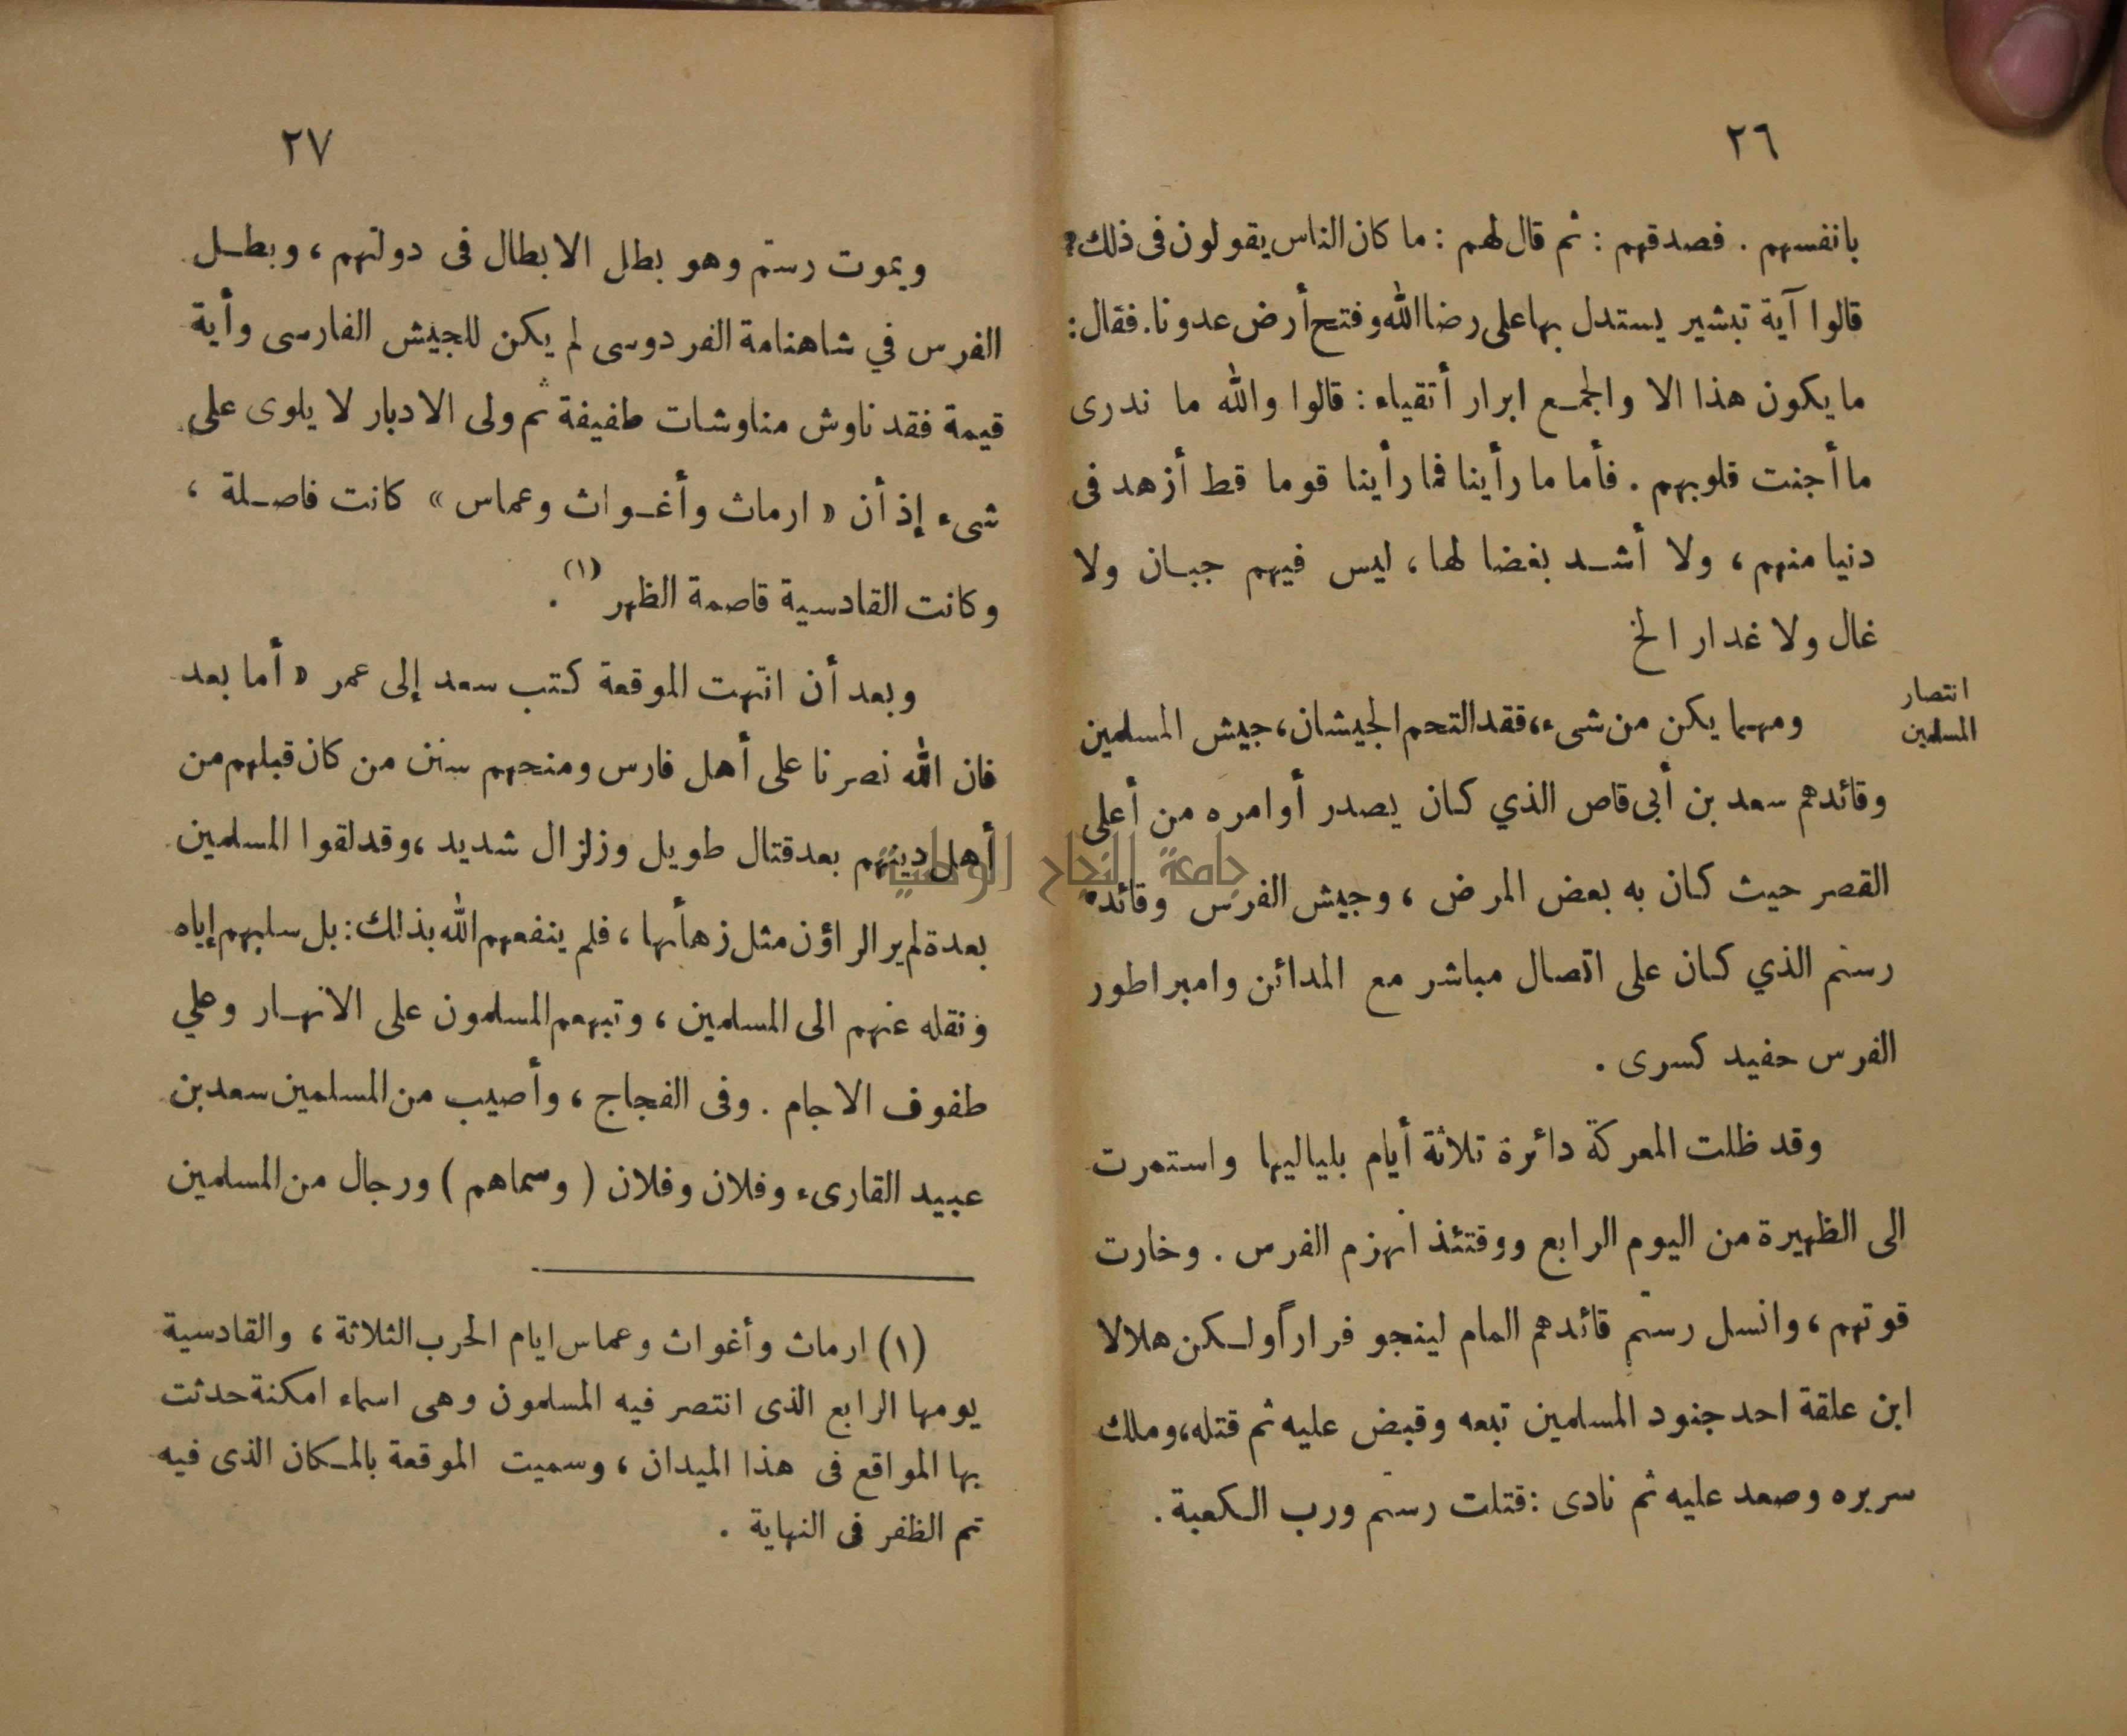 ٢٦
بانفسهم . فصدقهم : ثم قال لهم : ما كان الناس يقولون فى ذلك؟
قالوا آية تبشير يستدل بها على رضا الله وفتح أرض عدونا. فقال :
ما يكون هذا الا والجمع ابرار أتقياء : قالوا والله ما ندرى
ما أجنت قلوبهم . فأما ما رأينا فما رأينا قوما قط أزهد فى
دنيا منهم ، ولا أشد بغضا لها ، ليس فيهم جبان ولا
غال ولا غدار الخ
انتصار
المسلمين
ومهما يكن من شىء، فقد التحم الجيشان، جيش المسلمين
وقائدهم سعد بن أبى قاص الذي كان يصدر أوامره من أعلى
القصر حيث كان به بعض المرض ، وجيش الفرس وقائده
رستم الذي كان على اتصال مباشر مع المدائن وامبراطور
الفرس حفيد كسرى .
وقد ظلت المعركة دائرة ثلاثة أيام بلياليها واستمرت
الى الظهيرة من اليوم الرابع ووقتئذ انهزم الفرس . وخارت
قوتهم ، وانسل رستم قائدهم العام لينجو فراراً ولكن هلالا
ابن علقة احد جنود المسلمين تبعه وقبض عليه ثم قتله، وملك
سريره وصعد عليه ثم نادى : قتلت رستم ورب الكعبة .
٢٧
ويموت رستم وهو بطل الابطال فى دولتهم ، وبطل
الفرس في شاهنامة الفردوسى لم يكن للجيش الفارسى وأية
قيمة فقد ناوش مناوشات طفيفة ثم ولى الادبار لا يلوى على
شىء إذ أن « ارماث وأغواث وعماس » كانت فاصلة ،
وكانت القادسية قاصمة الظهر (١) .
وبعد أن انتهت الموقعة كتب سعد إلى عمر « أما بعد
فان الله نصرنا على أهل فارس ومنحهم سنن من كان قبلهم من
أهل دينهم بعد قتال طويل وزلزال شديد ، وقد لقوا المسلمين
بعدة لم ير الراؤن مثل زهأها ، فلم ينفعهم الله بذلك : بل سلبهم إياه
ونقله عنهم الى المسلمين ، وتبعهم المسلمون على الانهار وعلي
طفوف الاجام . وفى الفجاج ، وأصيب من المسلمين سعد بن
عبيد القارىء وفلان وفلان ( وسماهم ) ورجال من المسلمين
(١) ارماث وأغواث وعماس ايام الحرب الثلاثة ، والقادسية
يومها الرابع الذى انتصر فيه المسلمون وهى اسماء امكنة حدثت
بها المواقع فى هذا الميدان ، وسميت الموقعة بالمكان الذى فيه
تم الظفر فى النهاية .
جامعة النجاح الوطنية